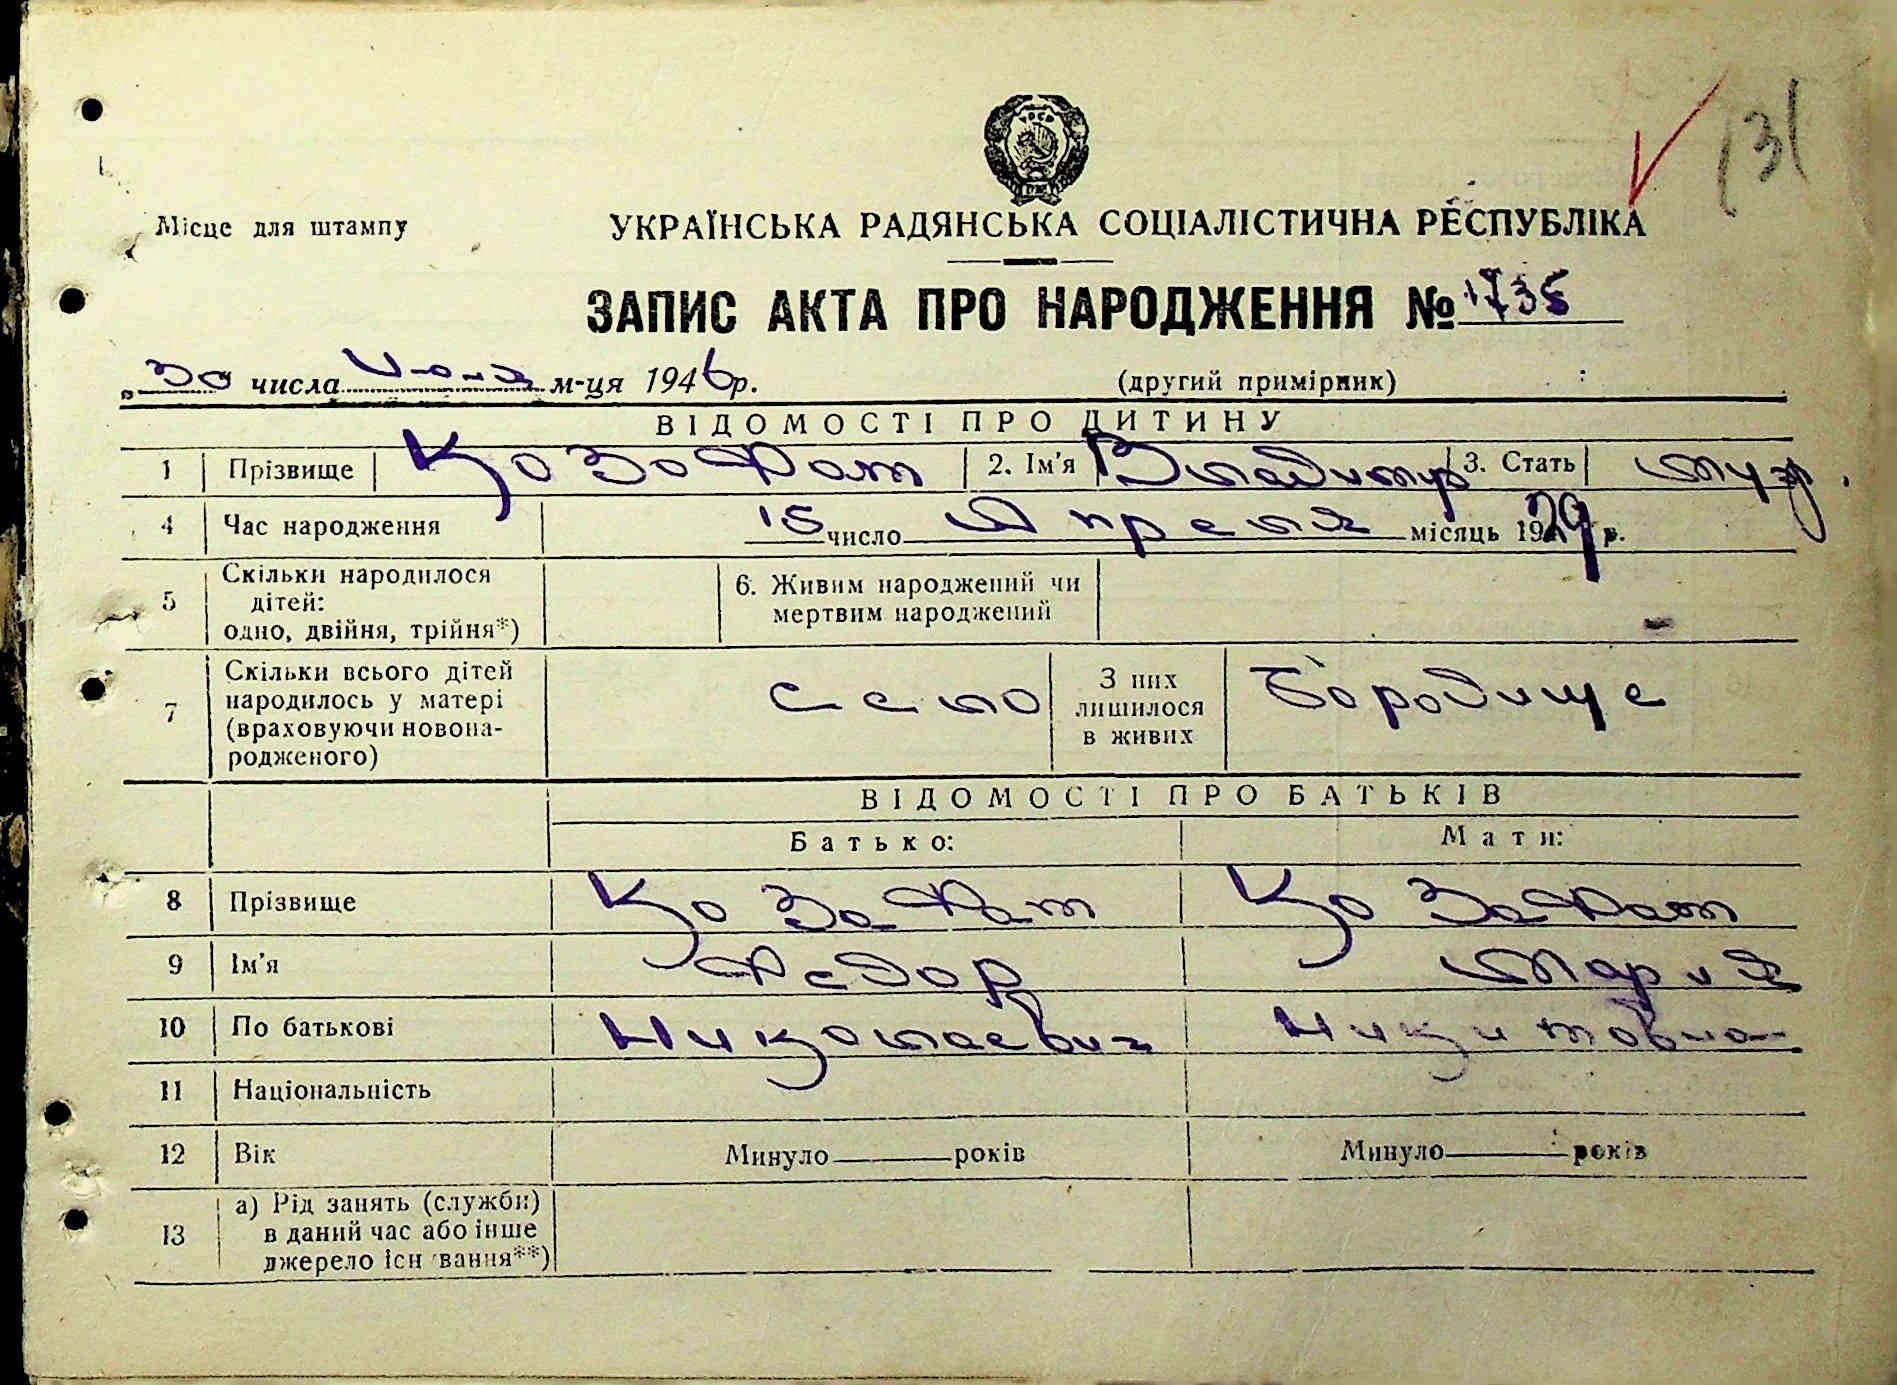 131
Місце для штампу
УКРАЇНСЬКА РАДЯНСЬКА СОЦІАЛІСТИЧНА РЕСПУБЛІКА
ЗАПИС АКТА ПРО НАРОДЖЕННЯ № 1735
„30 числа июля м-ця 1946 р. (другий примірник)
ВІДОМОСТІ ПРО ДИТИНУ
1 Прізвище Козафат 2. Ім'я Владимир 3. Стать муж.
4 Час народження 15 число Апреля місяць 1929 р.
5 Скільки народилося дітей: одно, двійня, трійня*) 6. Живим народжений чи мертвим народжений
7 Скільки всього дітей народилось у матері (враховуючи новонародженого) село З них лишилося в живих Бородище
ВІДОМОСТІ ПРО БАТЬКІВ
Батько: Мати:
8 Прізвище Козафат Козафат
9 Ім'я Федор Мария
10 По батькові Николаевич Никитовна
11 Національність
12 Вік Минуло років Минуло років
13 а) Рід занять (служби) в даний час або інше джерело існування**)